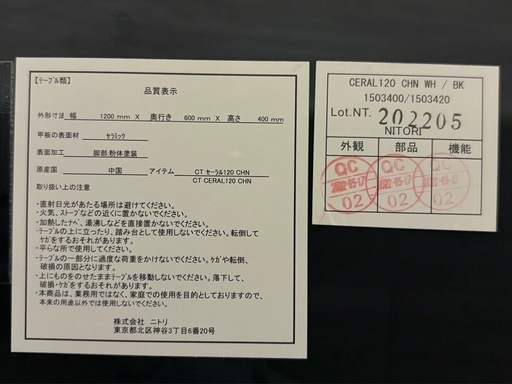 【テーブル類】
品質表示
外形寸法 幅 1200 mm X 奥行き 600 mm X 高さ 400 mm
甲板の表面材 セラミック
表面加工 脚部:粉体塗装
原産国 中国 アイテム CT セーラル120 CHN
CT CERAL120 CHN
取り扱い上の注意
・直射日光があたる場所は避けてください。
・火気、ストーブなどの近くに置かないでください。
・加熱したナベ、湯沸しなどを直接置かないでください。
・テーブルの上に立ったり、踏み台として使用しないでください。転倒して
ケガをするおそれがあります。
・平らな所で使用してください。
・テーブルの一部分に過度な荷重をかけないでください。ケガや転倒、
破損の原因となります。
・上にものをのせたままテーブルを移動しないでください。落下して、
破損・ケガをするおそれがあります。
・本商品は、業務用ではなく、家庭での使用を目的としておりますので、
本来の用途以外では使用しないでください。
株式会社 ニトリ
東京都北区神谷3丁目6番20号
CERAL120 CHN WH / BK
1503400/1503420
Lot.NT. 202205
NITORI
外観 部品 機能
QC QC QC
2022-05-17 2022-05-17 2022-05-17
02 02 02